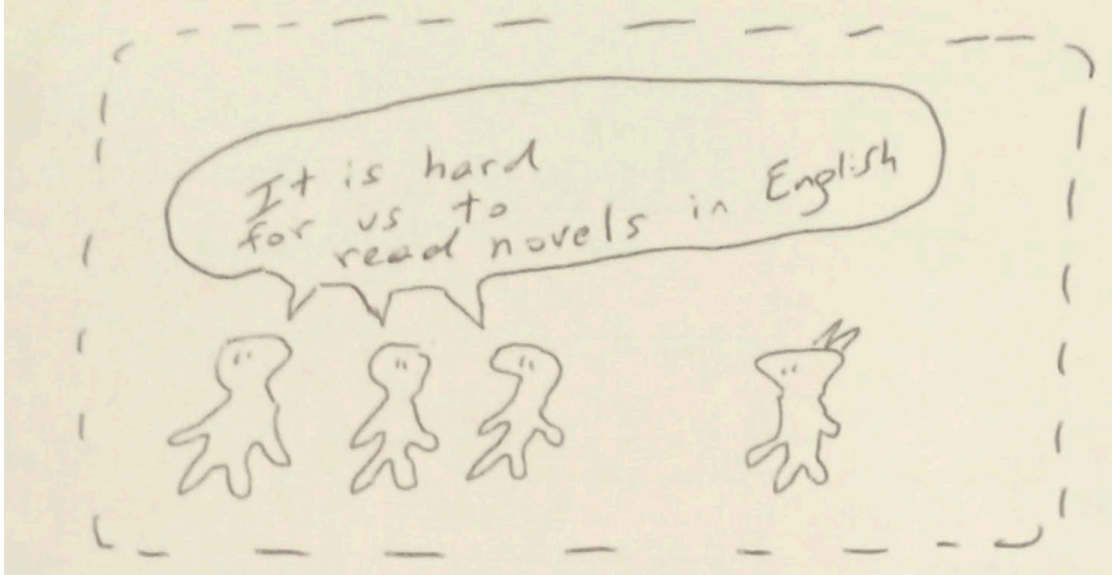 It is hard
for us to
read novels in English